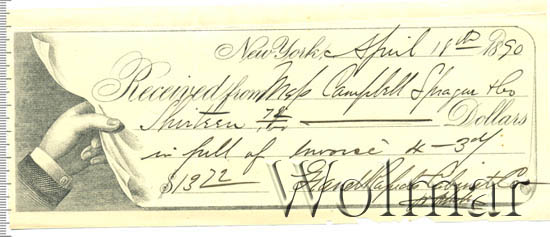 New York, April 18th 1890
Received from Mess Campbell Sprague & Co
Thirteen 72/100 Dollars
in full of Invoice
$13.72 Grand Rapids Cabinet Co
Wolmar